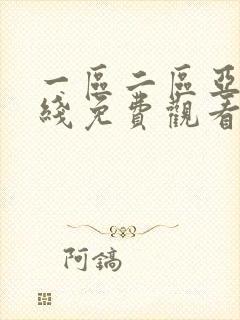 一區二區亞
綫免費觀看
阿鎬